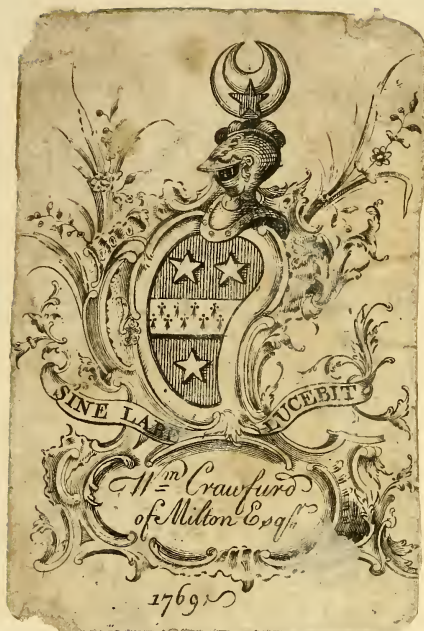 SINE LABE LUCEBIT
Wm Crawfurd
of Milton Esqr.
1769